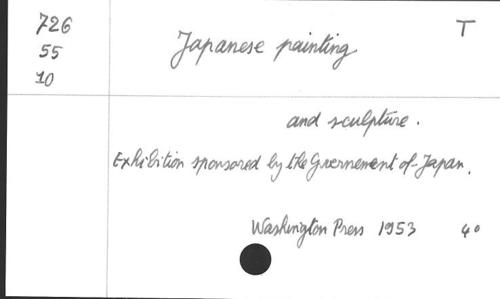 726 T
55 Japanese painting
10
and sculpture.
Exhibition sponsored by the Guernement of Japan.
Washington Press 1953 4°